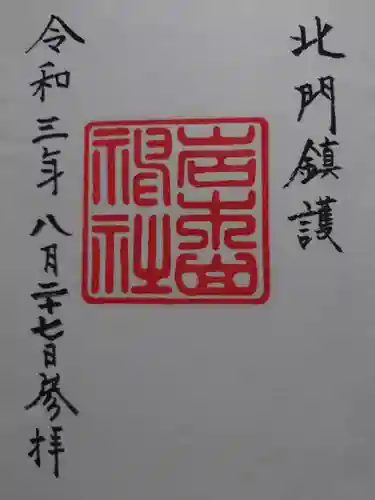 北門鎮護
岩木山
神社
令和三年八月二十七日参拝